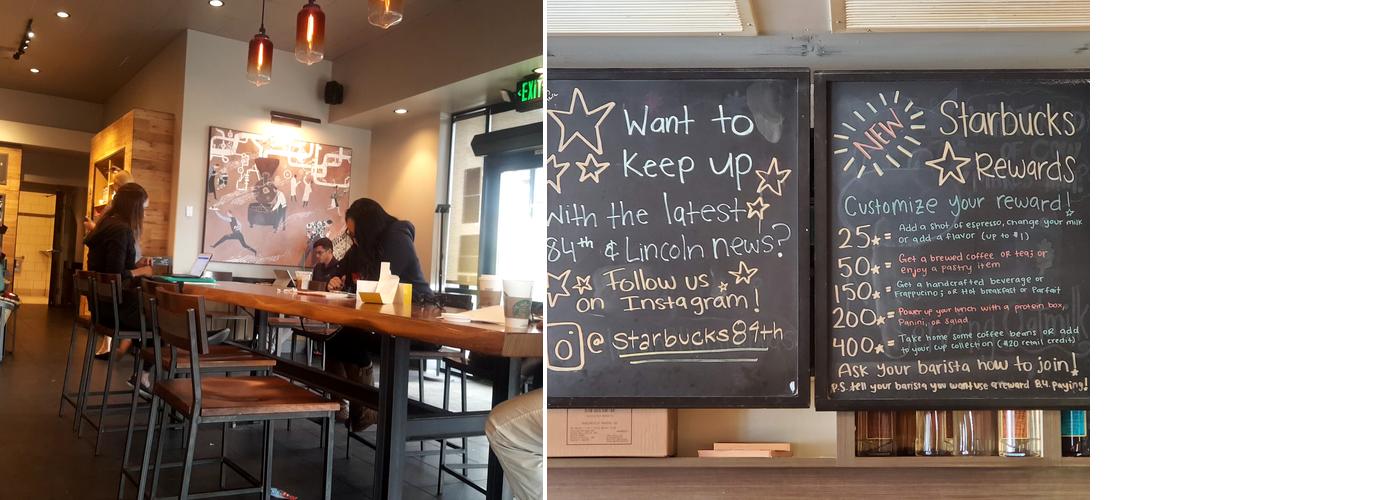 EXIT
Want to
Keep up
With the latest
84th & Lincoln news?
Follow us
on Instagram!
@starbucks84th
NEW
Starbucks
Rewards
Customize your reward!
25★ = Add a shot of espresso, change your milk
or add a flavor (up to $1)
50★ = Get a brewed coffee or tea; or
enjoy a pastry item
150★ = Get a handcrafted beverage or
Frappucino; or Hot breakfast or Parfait
200★ = Power up your lunch with a protein box,
Panini, or Salad
400★ = Take home some coffee beans OR add
to your cup collection ($20 retail credit)
Ask your barista how to join!
P.S. tell your barista you want use a reward B4 paying!